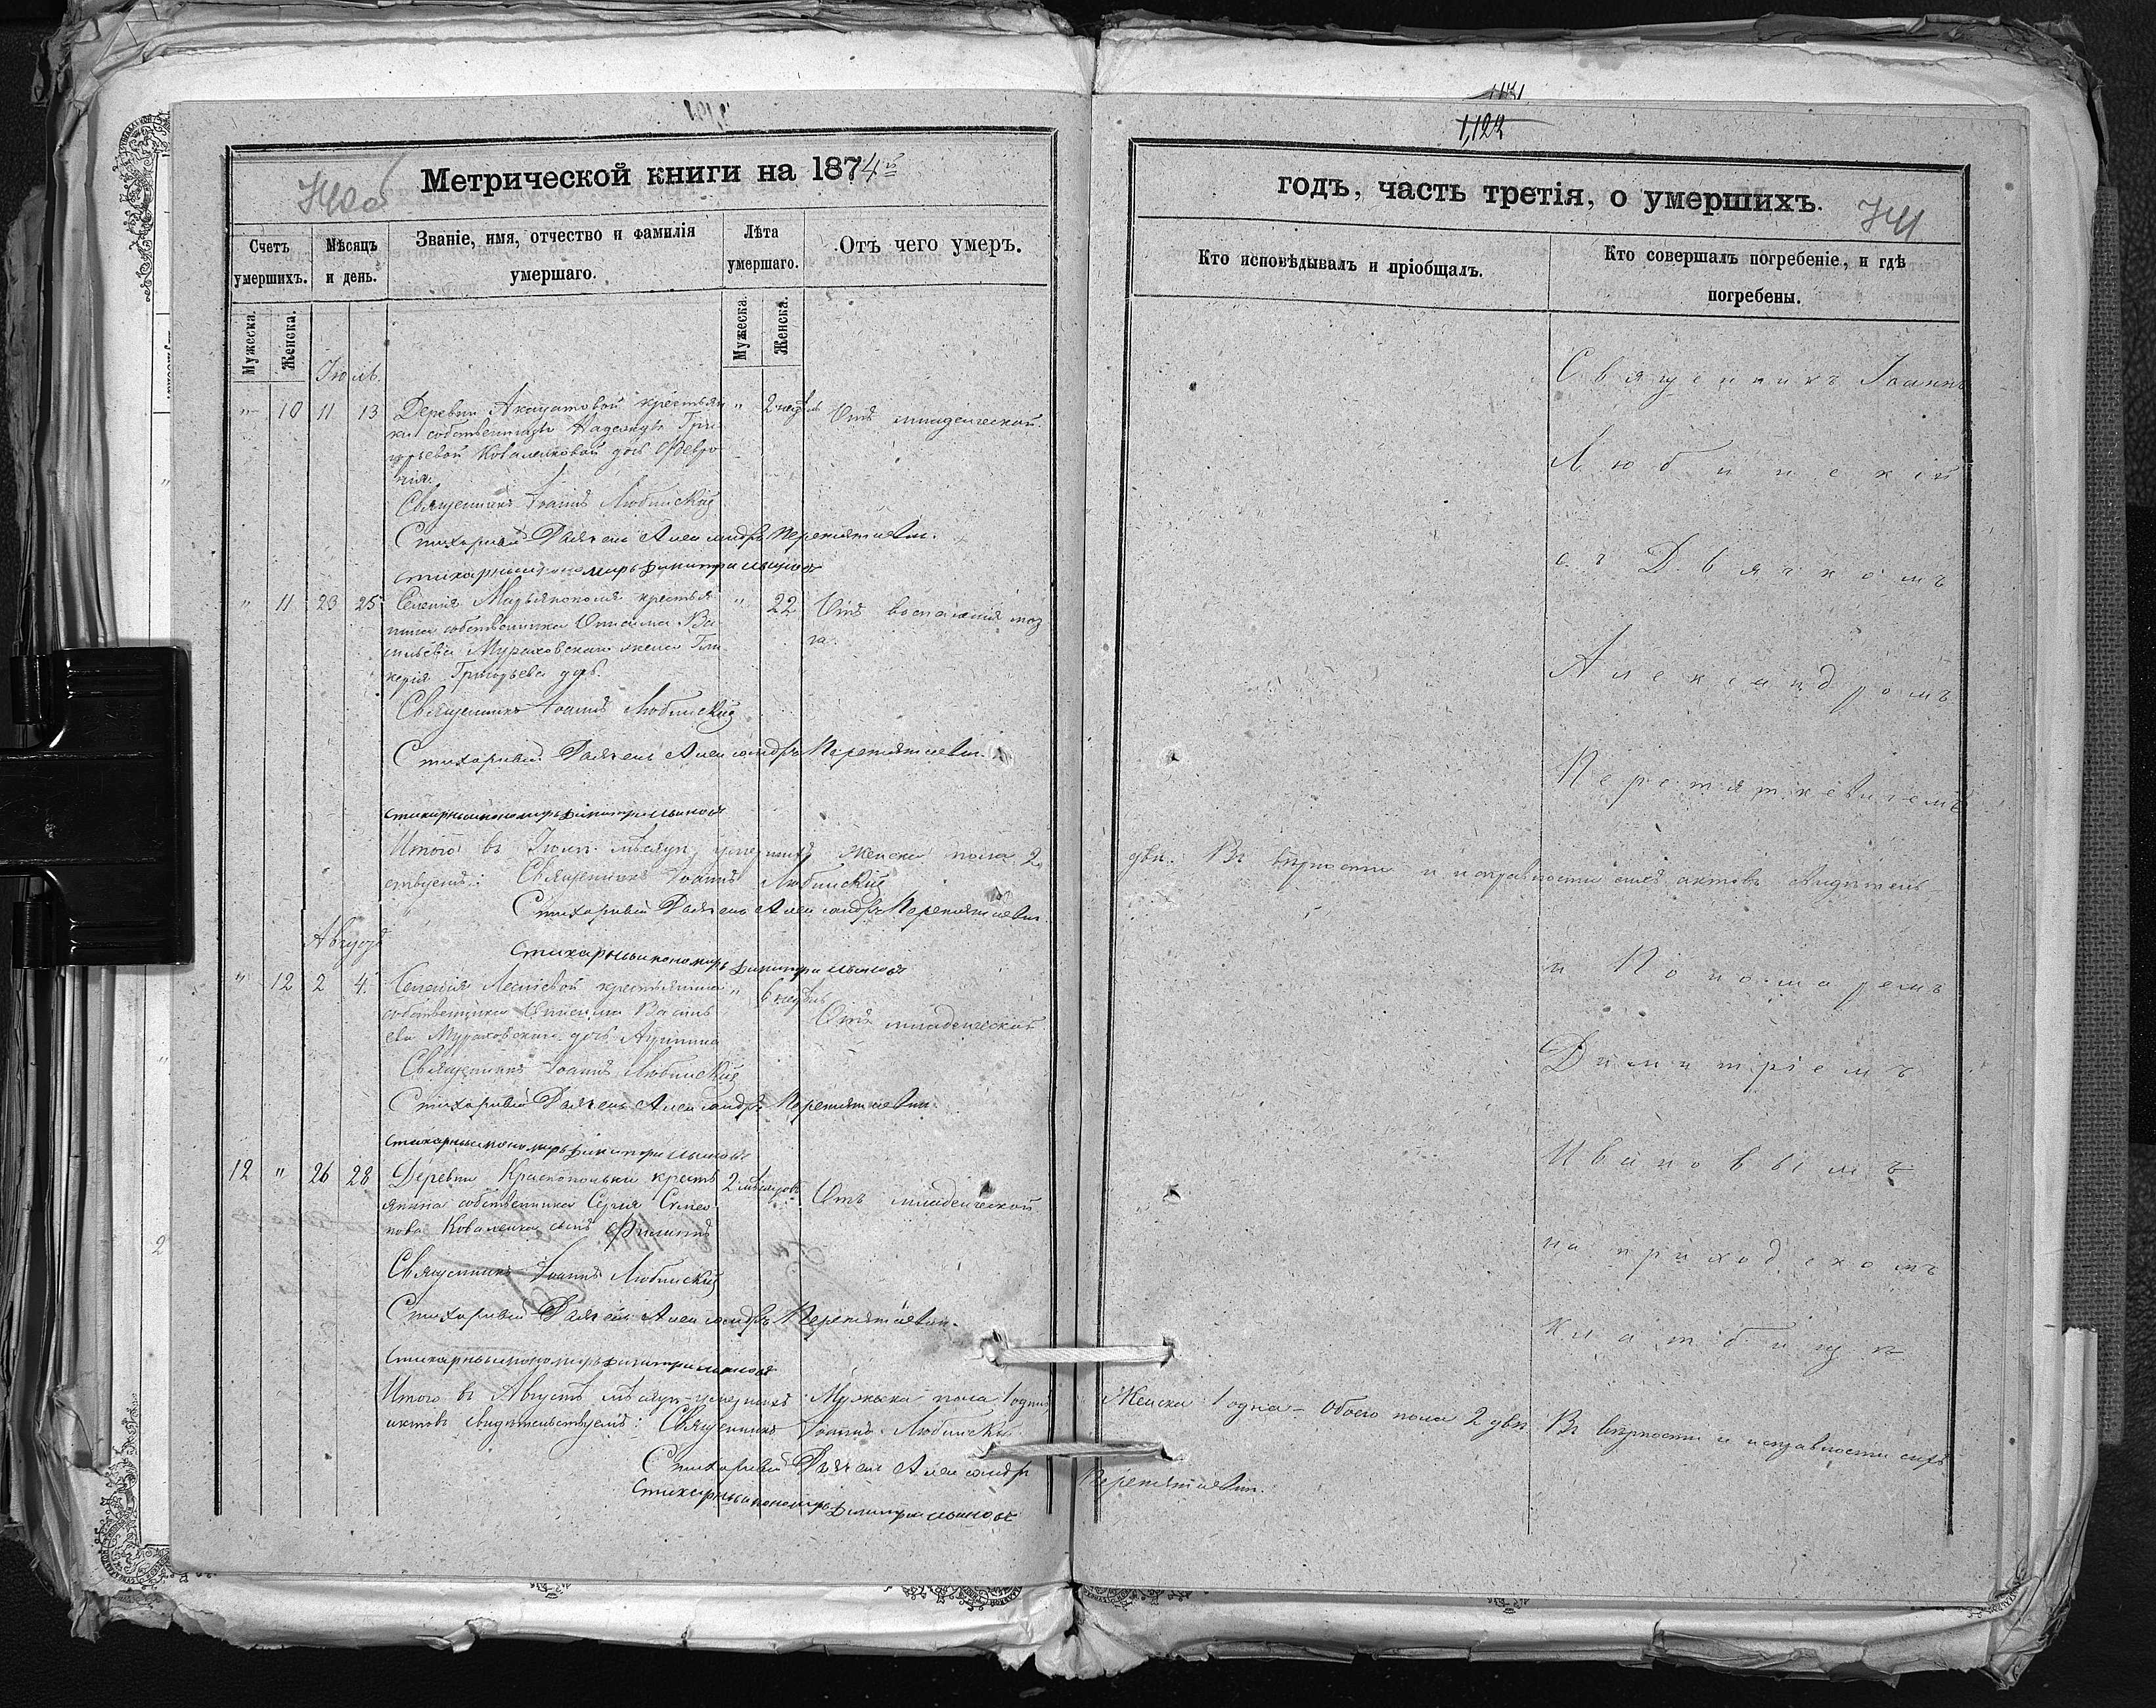 Метрической книги на 1874й
Счетъ умершихъ.
Мѣсяцъ и день.
Званіе, имя, отчество и фамилія умершаго.
Лѣта умершаго.
Отъ чего умеръ.
Мужеска.
Женска.
Мужеска.
Женска.
Іюль.
" 10 11 13 Деревни крестьян " 2 недѣль Отъ младенческой.
ки собственницы Надежды Гри
горьевой Коваленковой дочь Февро
нія.
Священникъ Іоаннъ Любинскій
Стихарный Дьячекъ Александръ Перетяткевичъ.
стихарный пономарь Димитрій Ивановъ
" 11 23 25 Селенія крестья " 22 Отъ воспаленія моз
нина собственника Ва га.
сильева Мураховскаго жена Гли
керія Григорьева дочь.
Священникъ Іоаннъ Любинскій
Стихарный Дьячекъ Александръ Перетяткевичъ.
стихарный пономарь Димитрій Ивановъ
Итого въ Іюлѣ мѣсяцѣ умершихъ Женска пола 2
ствуемъ: Священникъ Іоаннъ Любинскій
Стихарный Дьячекъ Александръ Перетяткевичъ.
Августъ
стихарный пономарь Димитрій Ивановъ
" 12 2 4. Селенія крестьянина " 6 недѣль
собственника Василь Отъ младенческой
ева Мураховскаго дочь
Священникъ Іоаннъ Любинскій
Стихарный Дьячекъ Александръ Перетяткевичъ.
стихарный пономарь Димитрій Ивановъ
12 " 26 28 Деревни Краснополки кресть 2 мѣсяцовъ Отъ младенческой
янина собственника Сергія Симео
нова Коваленка сынъ Филиппъ
Священникъ Іоаннъ Любинскій
Стихарный Дьячекъ Александръ Перетяткевичъ.
стихарный пономарь Димитрій Ивановъ
Итого въ Августѣ мѣсяцѣ умершихъ Мужеска пола 1 одинъ
актовъ свидѣтельствуемъ: Священникъ Іоаннъ Любинскій
Стихарный Дьячекъ Александръ
стихарный пономарь Димитрій Ивановъ
1,122
годъ, часть третія, о умершихъ.
Кто исповѣдывалъ и пріобщалъ.
Кто совершалъ погребеніе, и гдѣ погребены.
Священникъ Іоаннъ
Любинскій
съ Дьячкомъ
Александромъ
Перетяткевичемъ
двѣ. Въ вѣрности и исправности сихъ актовъ свидѣтель-
и Пономаремъ
Димитріемъ
Ивановымъ
на приходскомъ
кладбищѣ
Женска 1 одна - Обоего пола 2 двѣ Въ вѣрности и исправности сихъ
Перетяткевичъ.